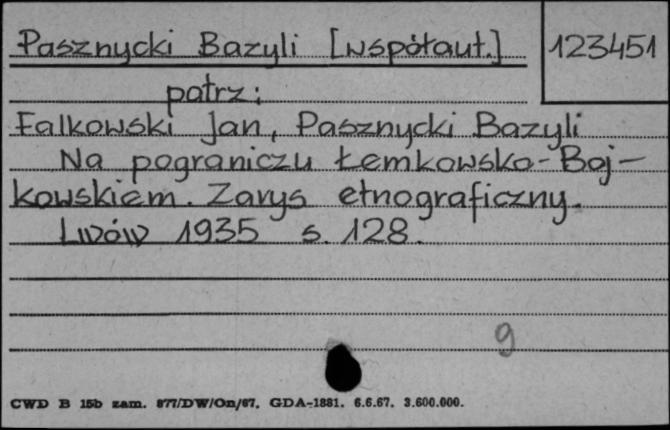 Pasznycki Bazyli [współaut.]
123451
patrz:
Falkowski Jan, Pasznycki Bazyli
Na pograniczu Łemkowsko-Boj-
kowskiem. Zarys etnograficzny.
Lwów 1935 s. 128.
9
CWD B 15b zam. 877/DW/On/67. GDA-1881. 6.6.67. 3.600.000.